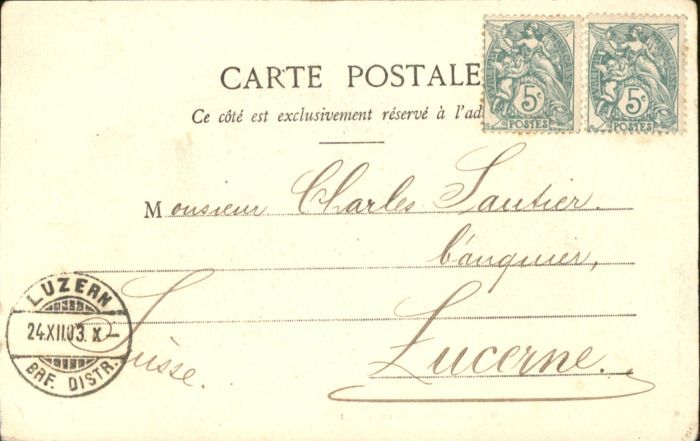 CARTE POSTALE
Ce côté est exclusivement réservé à l'ad
5c
POSTES
5c
POSTES
Monsieur Charles Sautier.
banquier,
Lucerne.
Suisse.
LUZERN
24.XII.03. X–
BRF. DISTR.